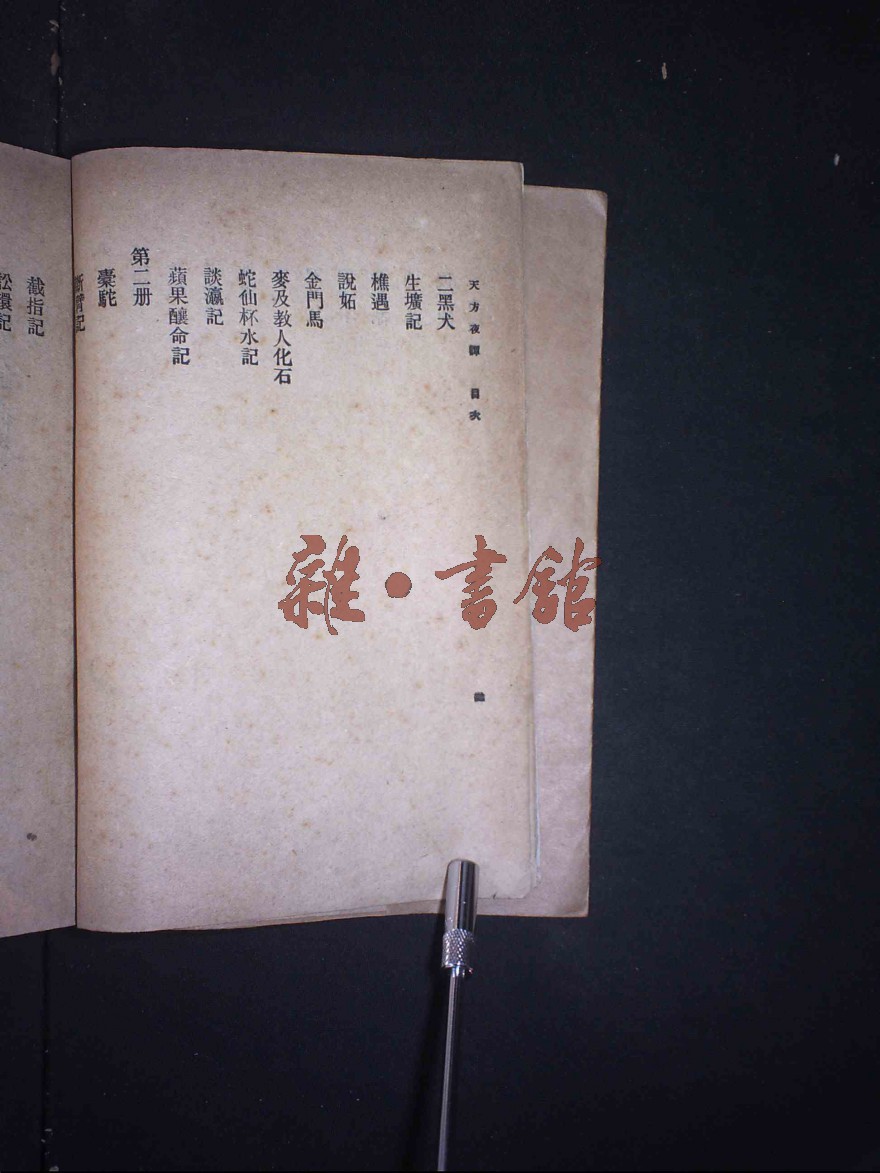 天方夜譚 目次
二黑犬
生壙記
樵遇
說妬
金門馬
麥及教人化石
蛇仙杯水記
談瀛記
蘋果釀命記
第二册
橐駝
斷臂記
截指記
訟環記
雜·書館